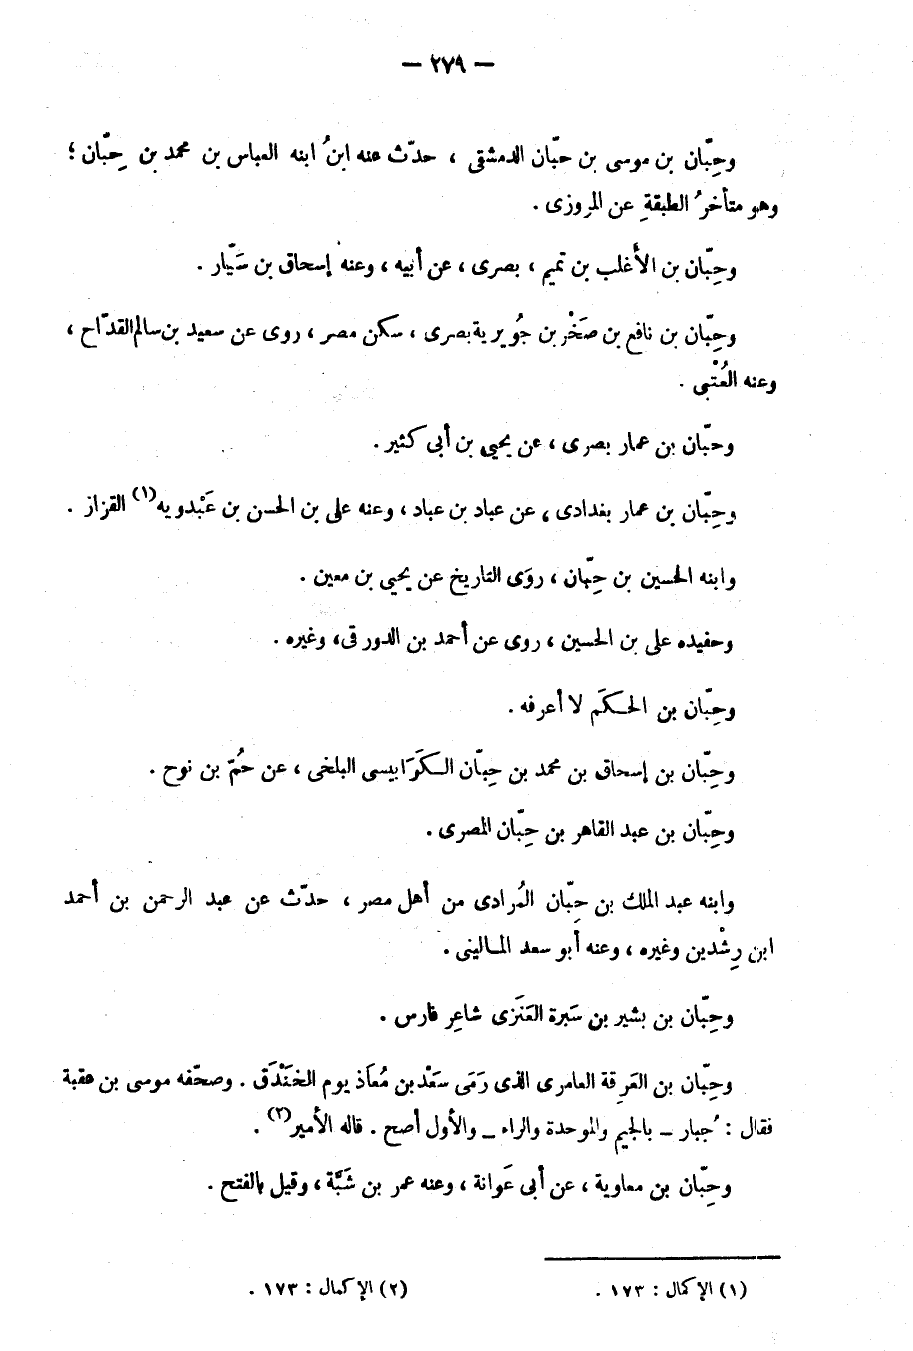 — ٢٧٩ —
وحِبّان بن موسى بن حبّان الدمشقى ، حدّث عنه ابنُ ابنه العباس بن محمد بن حِبّان ؛
وهو متأخرُ الطبقةِ عن المروزى .
وحِبّان بن الأغلب بن تميم ، بصرى ، عن أبيه ، وعنه إسحاق بن سَيّار .
وحِبّان بن نافع بن صَخْر بن جُويرية بصرى ، سكن مصر ، روى عن سعيد بن سالم القدّاح ،
وعنه العُتْبى .
وحبّان بن عمار بصرى ، عن يحيى بن أبى كثير .
وحِبّان بن عمار بغدادى ، عن عباد بن عباد ، وعنه على بن الحسن بن عَبْدويه(١) القزاز .
وابنه الحسين بن حِبّان ، روَى التاريخ عن يحيى بن معين .
وحفيده على بن الحسين ، روى عن أحمد بن الدورقى ، وغيره .
وحِبّان بن الحكَم لا أعرفه .
وحِبّان بن إسحاق بن محمد بن حِبّان الكَرَابيسى البلخى ، عن حُمّ بن نوح .
وحِبّان بن عبد القاهر بن حِبّان المصرى .
وابنه عبد الملك بن حِبّان المُرادى من أهل مصر ، حدّث عن عبد الرحمن بن أحمد
ابن رِشْدِين وغيره ، وعنه أبو سعد المالينى .
وحِبّان بن بشير بن سَبرة العَنَزى شاعِر فارس .
وحِبّان بن العَرِقة العامرى الذى رَمَى سَعْد بن مُعاذ يوم الخَنْدَق . وصحّفه موسى بن عقبة
فقال : جُبار ــ بالجيم والموحدة والراء ــ والأول أصح . قاله الأمير(٢) .
وحِبّان بن معاوية ، عن أبى عَوانة ، وعنه عمر بن شَبَّة ، وقيل بالفتح .
(١) الإكمال : ١٧٣ .
(٢) الإكمال : ١٧٣ .